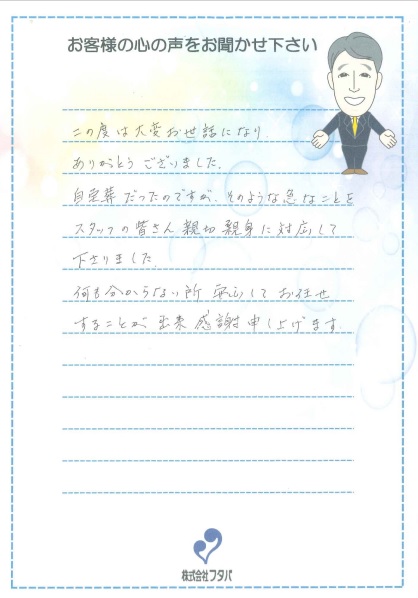 お客様の心の声をお聞かせ下さい
この度は大変お世話になり
ありがとうございました。
自宅葬だったのですが、そのような急なことを
スタッフの皆さん親切親身に対応して
下さりました。
何も分からない所安心してお任せ
することが出来感謝申し上げます。
株式会社フタバ